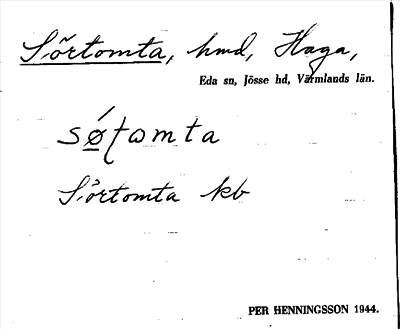 Sörtomta, hmd, Haga,
Eda sn, Jösse hd, Värmlands län.
Sörtomta kb
PER HENNINGSSON 1944.